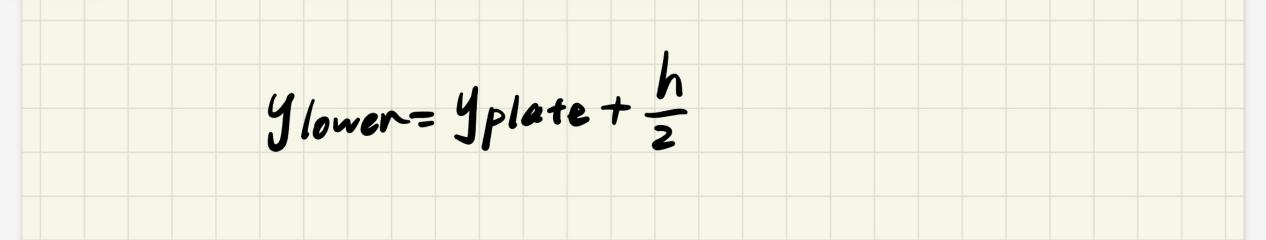 y_lower = y_plate + h/2